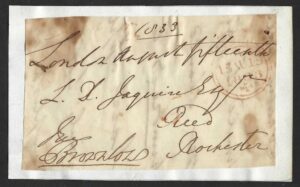 1833
London August fifteenth
L. D. Jaquire Esqr
Reed
Rochester
Brownlow